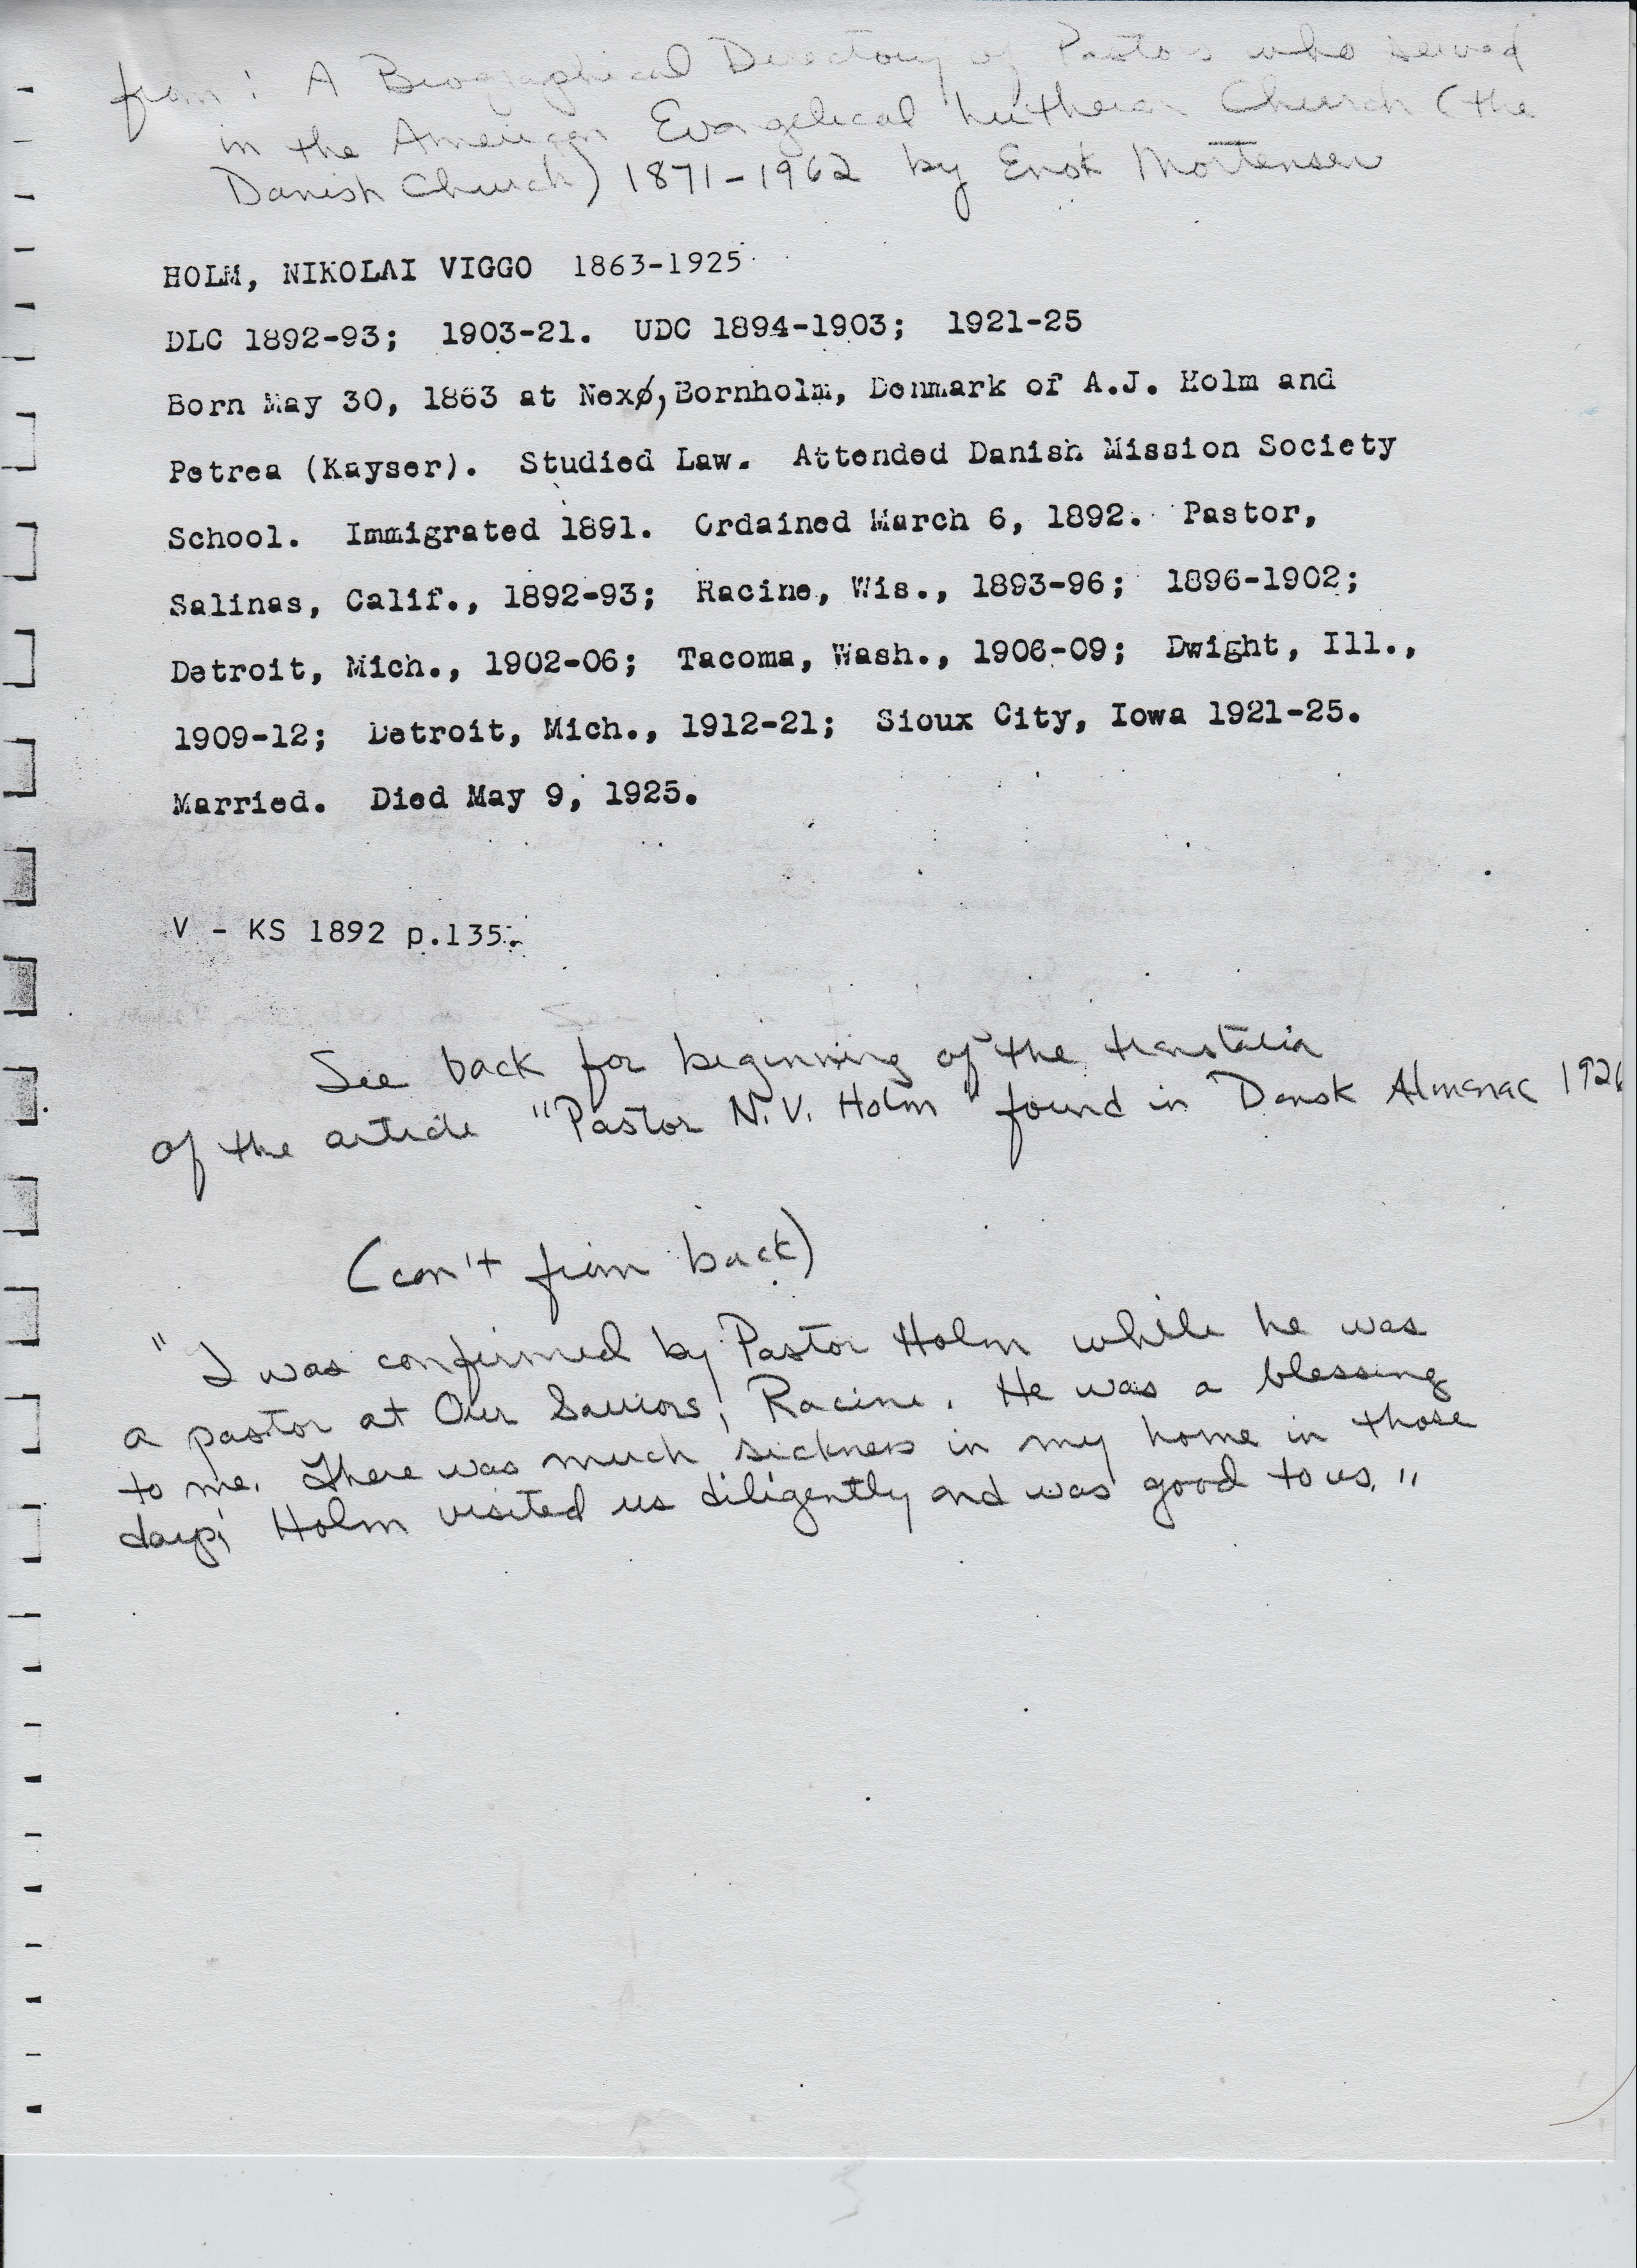 from: A Biographical Directory of Pastors who served
in the American Evangelical Lutheran Church (the
Danish Church) 1871-1962 by Enok Mortensen
HOLM, NIKOLAI VIGGO 1863-1925
DLC 1892-93; 1903-21. UDC 1894-1903; 1921-25
Born May 30, 1863 at Nexø, Bornholm, Denmark of A.J. Holm and
Petrea (Kayser). Studied Law. Attended Danish Mission Society
School. Immigrated 1891. Ordained March 6, 1892. Pastor,
Salinas, Calif., 1892-93; Racine, Wis., 1893-96; 1896-1902;
Detroit, Mich., 1902-06; Tacoma, Wash., 1906-09; Dwight, Ill.,
1909-12; Detroit, Mich., 1912-21; Sioux City, Iowa 1921-25.
Married. Died May 9, 1925.
V - KS 1892 p.135.
See back for beginning of the translation
of the article "Pastor N.V. Holm" found in Dansk Almanac 1926
(con't from back)
"I was confirmed by Pastor Holm while he was
a pastor at Our Saviors, Racine. He was a blessing
to me. There was much sickness in my home in those
days; Holm visited us diligently and was good to us."